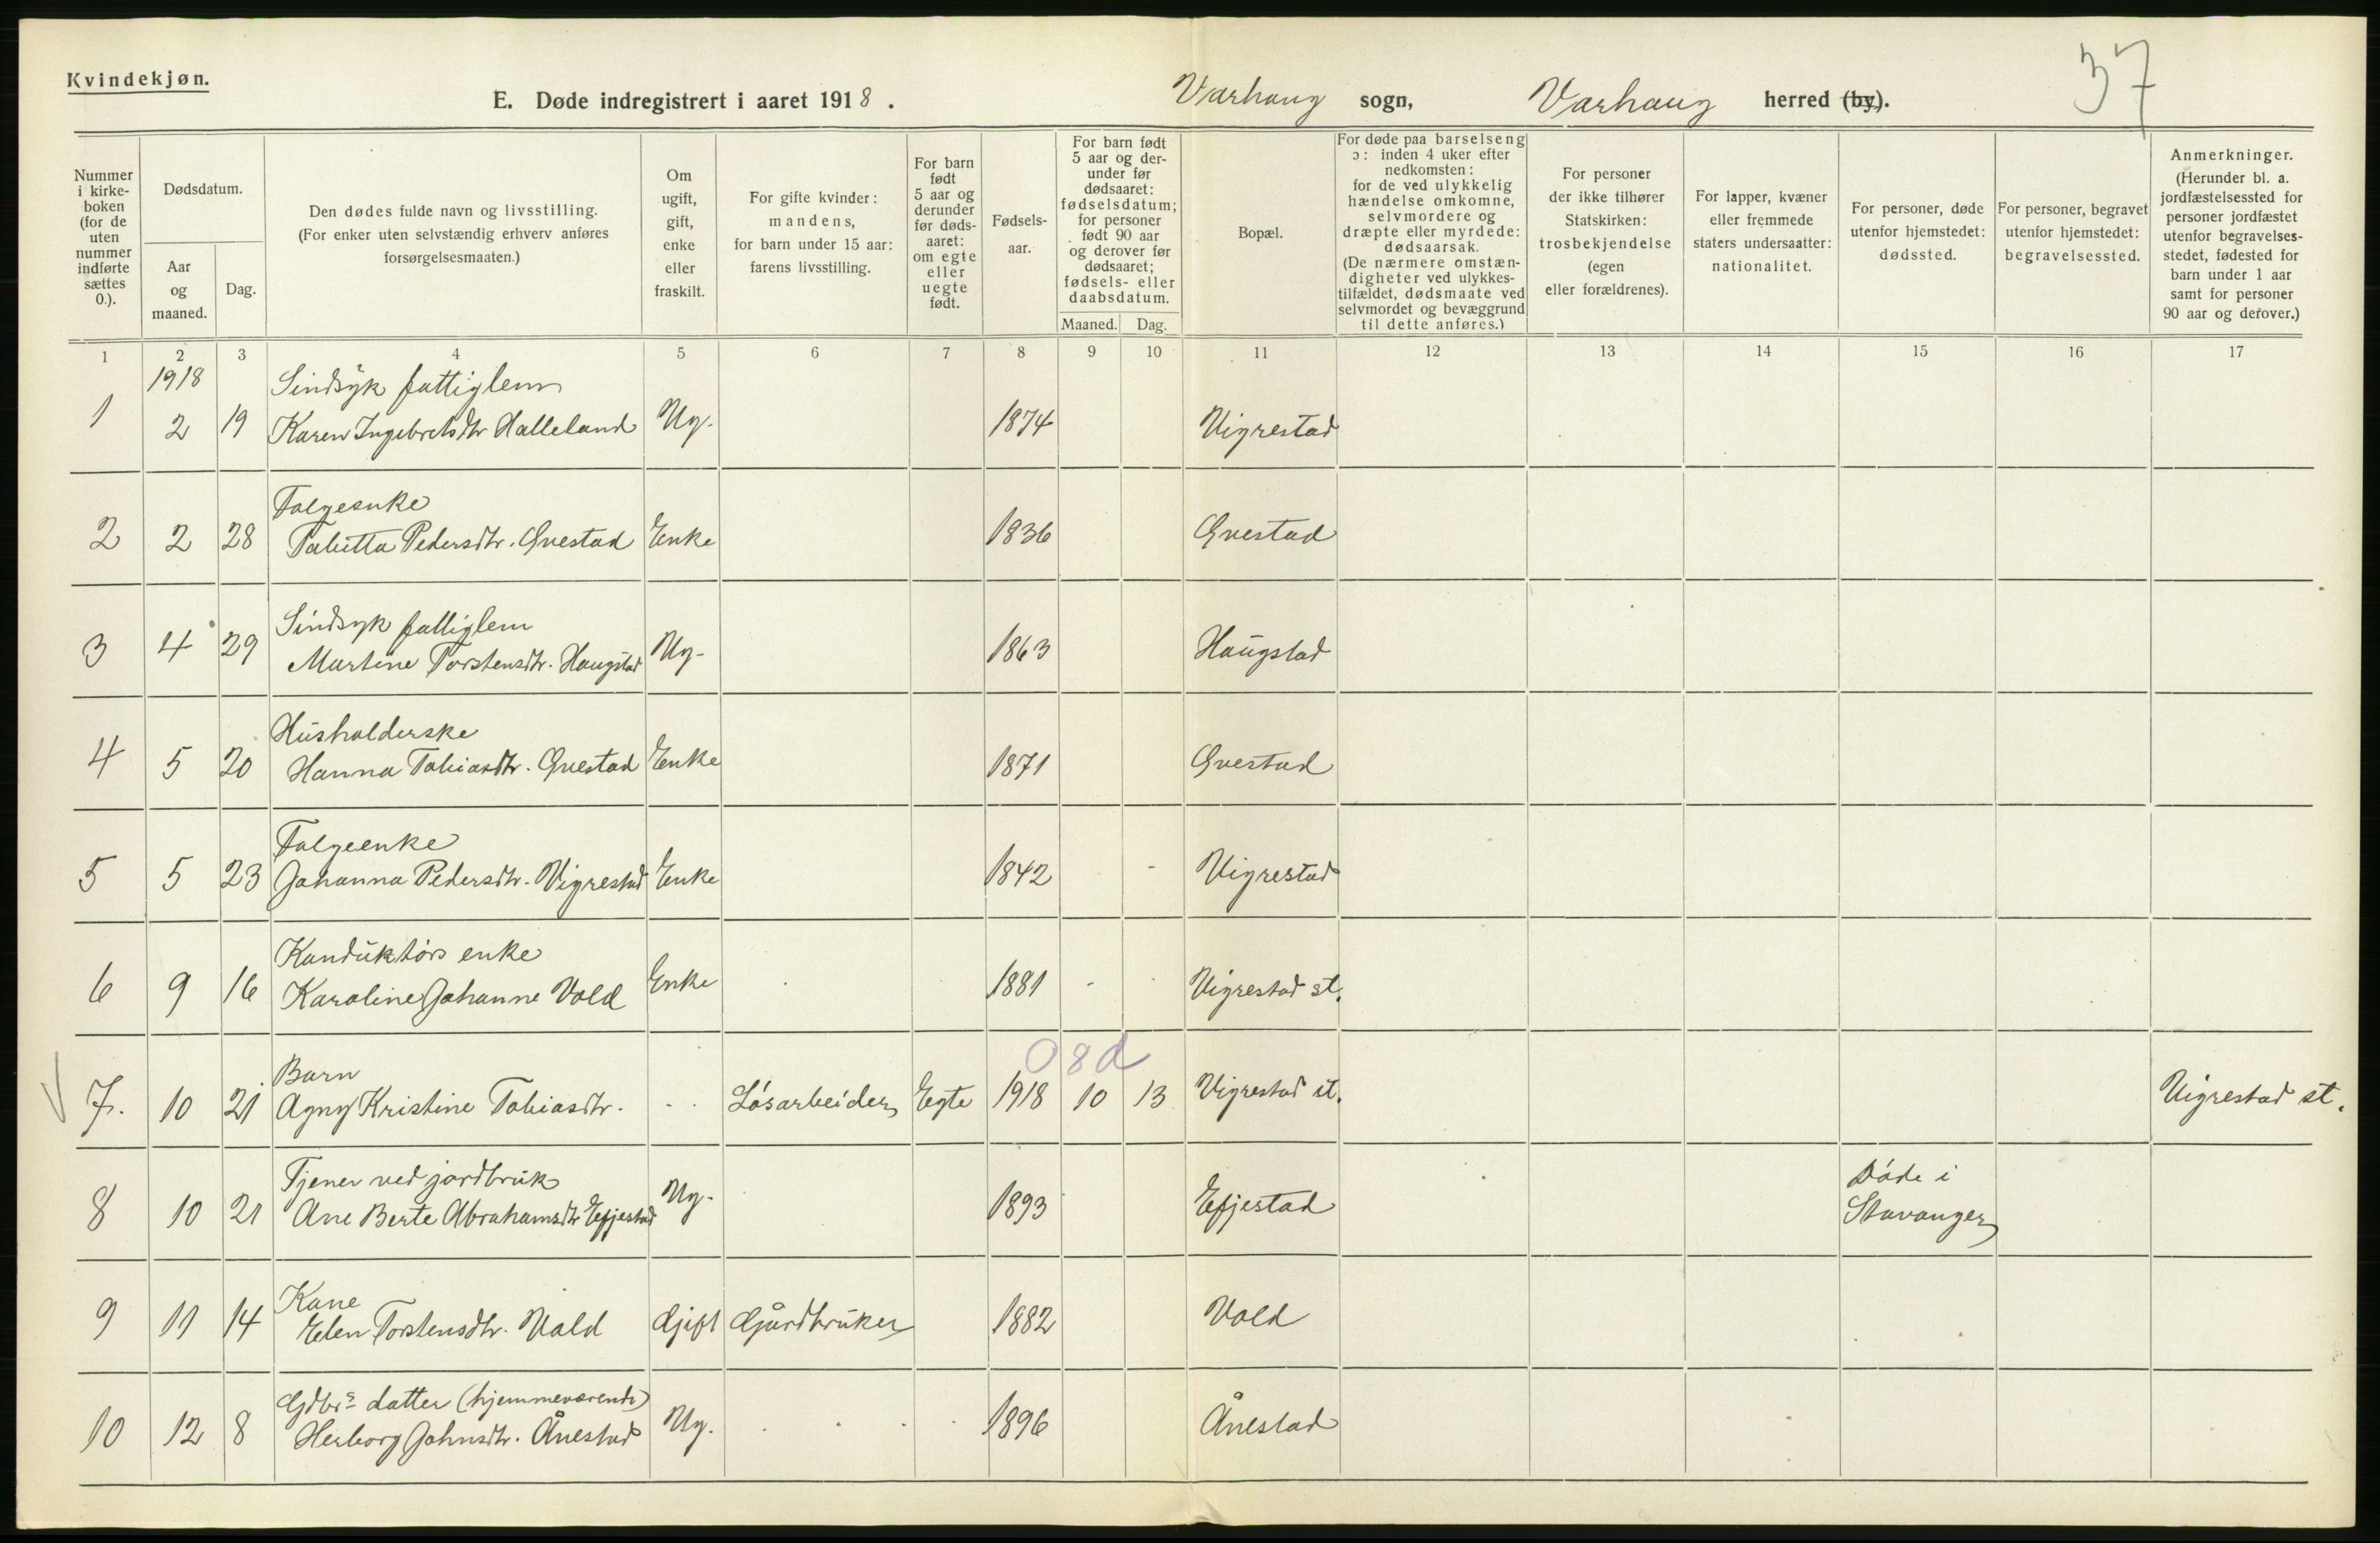 Kvindekjøn.
37
E. Døde indregistrert i aaret 1918.
Varhaug sogn, Varhaug herred (by).
Nummer i kirkeboken (for de uten nummer indførte sættes 0.).
Dødsdatum.
Aar og maaned.
Dag.
Den dødes fulde navn og livsstilling.
(For enker uten selvstændig erhverv anføres forsørgelsesmaaten.)
Om ugift, gift, enke eller fraskilt.
For gifte kvinder: mandens, for barn under 15 aar: farens livsstilling.
For barn født 5 aar og derunder før dødsaaret: om egte eller uegte født.
Fødselsaar.
For barn født 5 aar og derunder før dødsaaret: fødselsdatum; for personer født 90 aar og derover før dødsaaret; fødsels- eller daabsdatum.
Maaned. Dag.
Bopæl.
For døde paa barselseng ɔ: inden 4 uker efter nedkomsten: for de ved ulykkelig hændelse omkomne, selvmordere og dræpte eller myrdede: dødsaarsak.
(De nærmere omstændigheter ved ulykkestilfældet, dødsmaate ved selvmordet og bevæggrund til dette anføres.)
For personer der ikke tilhører Statskirken: trosbekjendelse (egen eller forældrenes).
For lapper, kvæner eller fremmede staters undersaatter: nationalitet.
For personer, døde utenfor hjemstedet: dødssted.
For personer, begravet utenfor hjemstedet: begravelsessted.
Anmerkninger.
(Herunder bl. a. jordfæstelsessted for personer jordfæstet utenfor begravelsesstedet, fødested for barn under 1 aar samt for personer 90 aar og derover.)
1 2 3 4 5 6 7 8 9 10 11 12 13 14 15 16 17
1918
Sindsyk fattiglem
1 2 19 Karen Ingebretsdtr Halleland Ug. 1874 Vigrestad
Folgeenke
2 2 28 Tabitta Pedersdtr. Gvestad Enke 1836 Gvestad
Sindsyk fattiglem
3 4 29 Martine Torstensdtr. Haugstad Ug. 1863 Haugstad
Husholderske
4 5 20 Hanna Tobiasdtr. Gvestad Enke 1871 Gvestad
Folgeenke
5 5 23 Johanna Pedersdtr. Vigrestad Enke 1842 Vigrestad
Konduktørs enke
6 9 16 Karoline Johanne Vold Enke 1881 Vigrestad st.
08d
Barn
7. 10 21 Agny Kristine Tobiasdtr. Løsarbeider Egte 1918 10 13 Vigrestad st. Vigrestad st.
Tjener ved jordbruk
8 10 21 Ane Berte Abrahamsdtr Efjestad Ug. 1893 Efjestad Døde i Stavanger
Kone
9 11 14 Elen Torstensdtr. Vold Gjift Gårdbruker 1882 Vold
Gdbrs datter (hjemmeværende)
10 12 8 Herborg Johnsdtr. Ånestad Ug. 1896 Ånestad